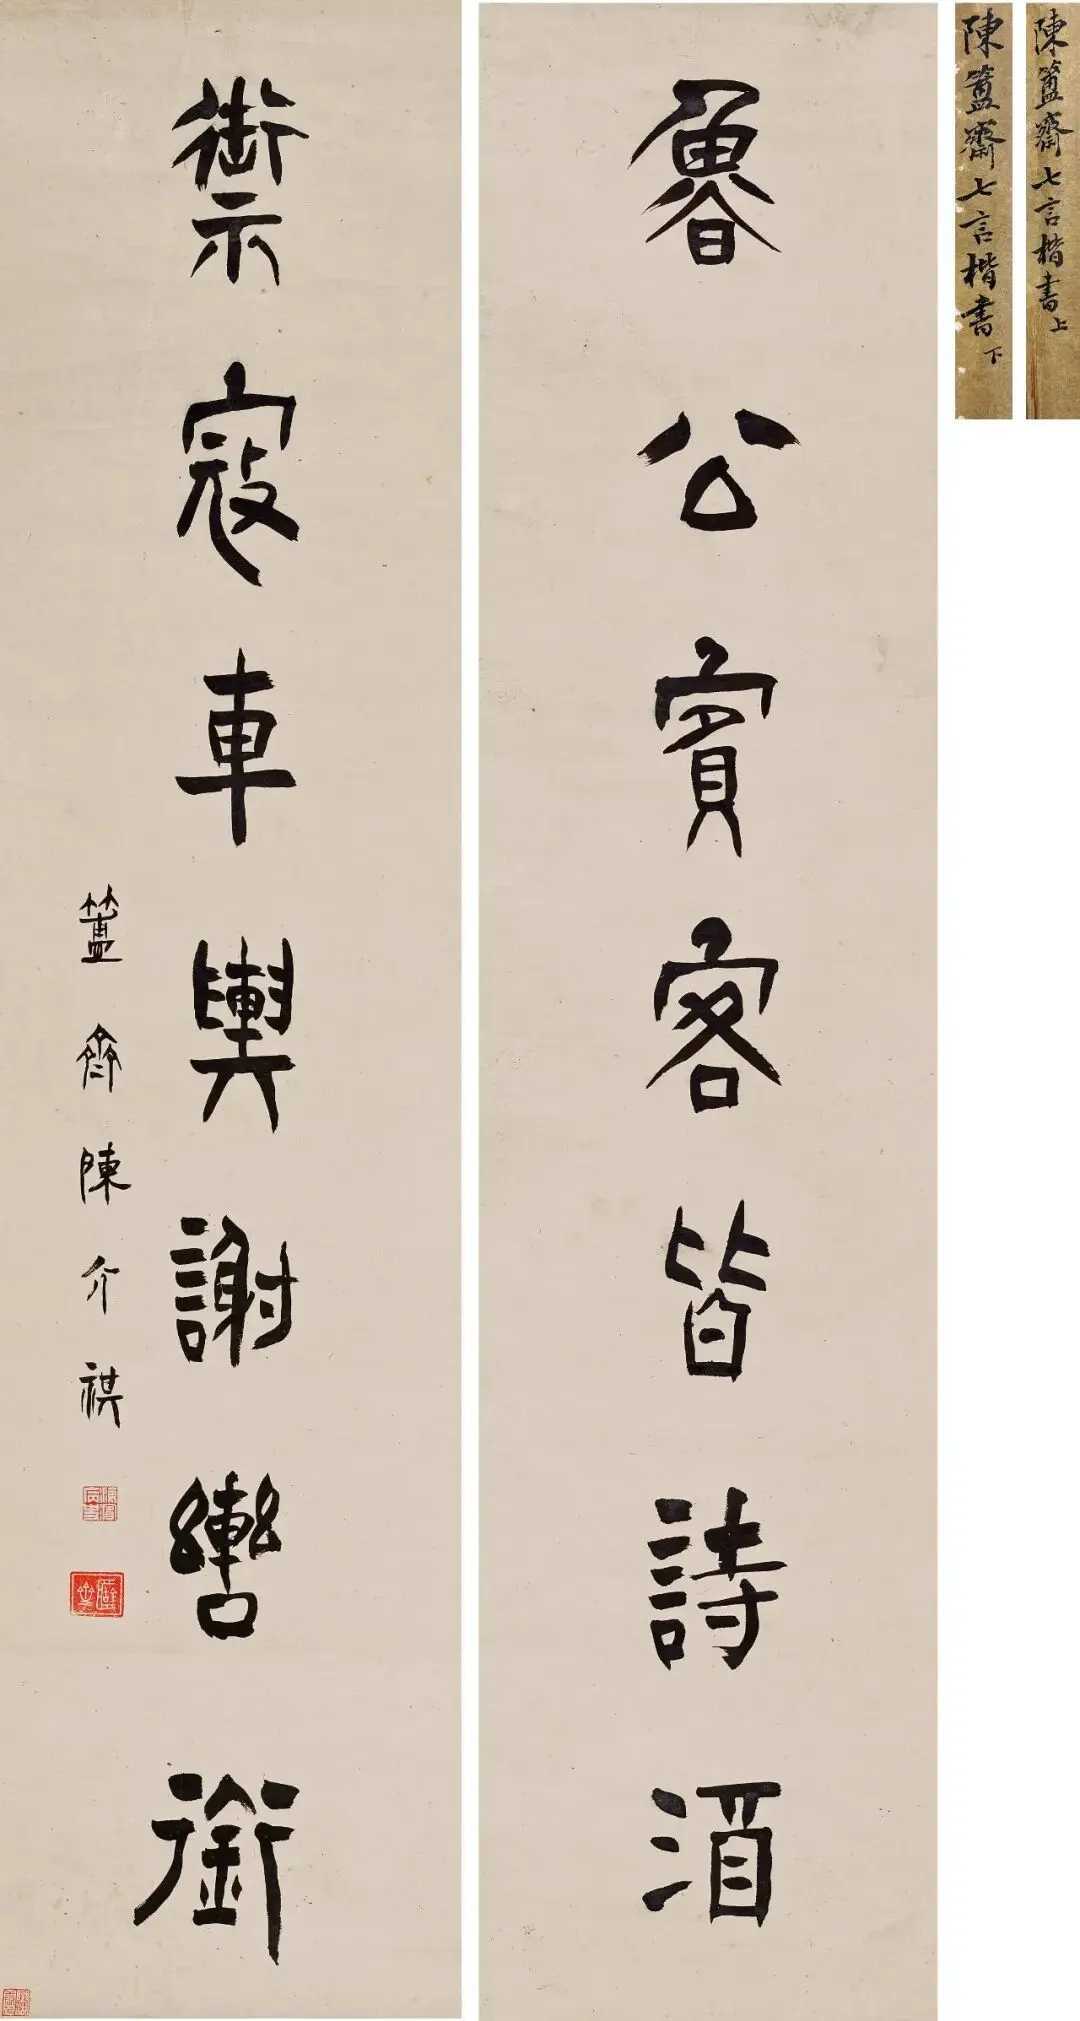 陳簠齋七言楷書上
陳簠齋七言楷書下
魯公賓客皆詩酒
禦寇車輿謝轡銜
簠齋陳介祺